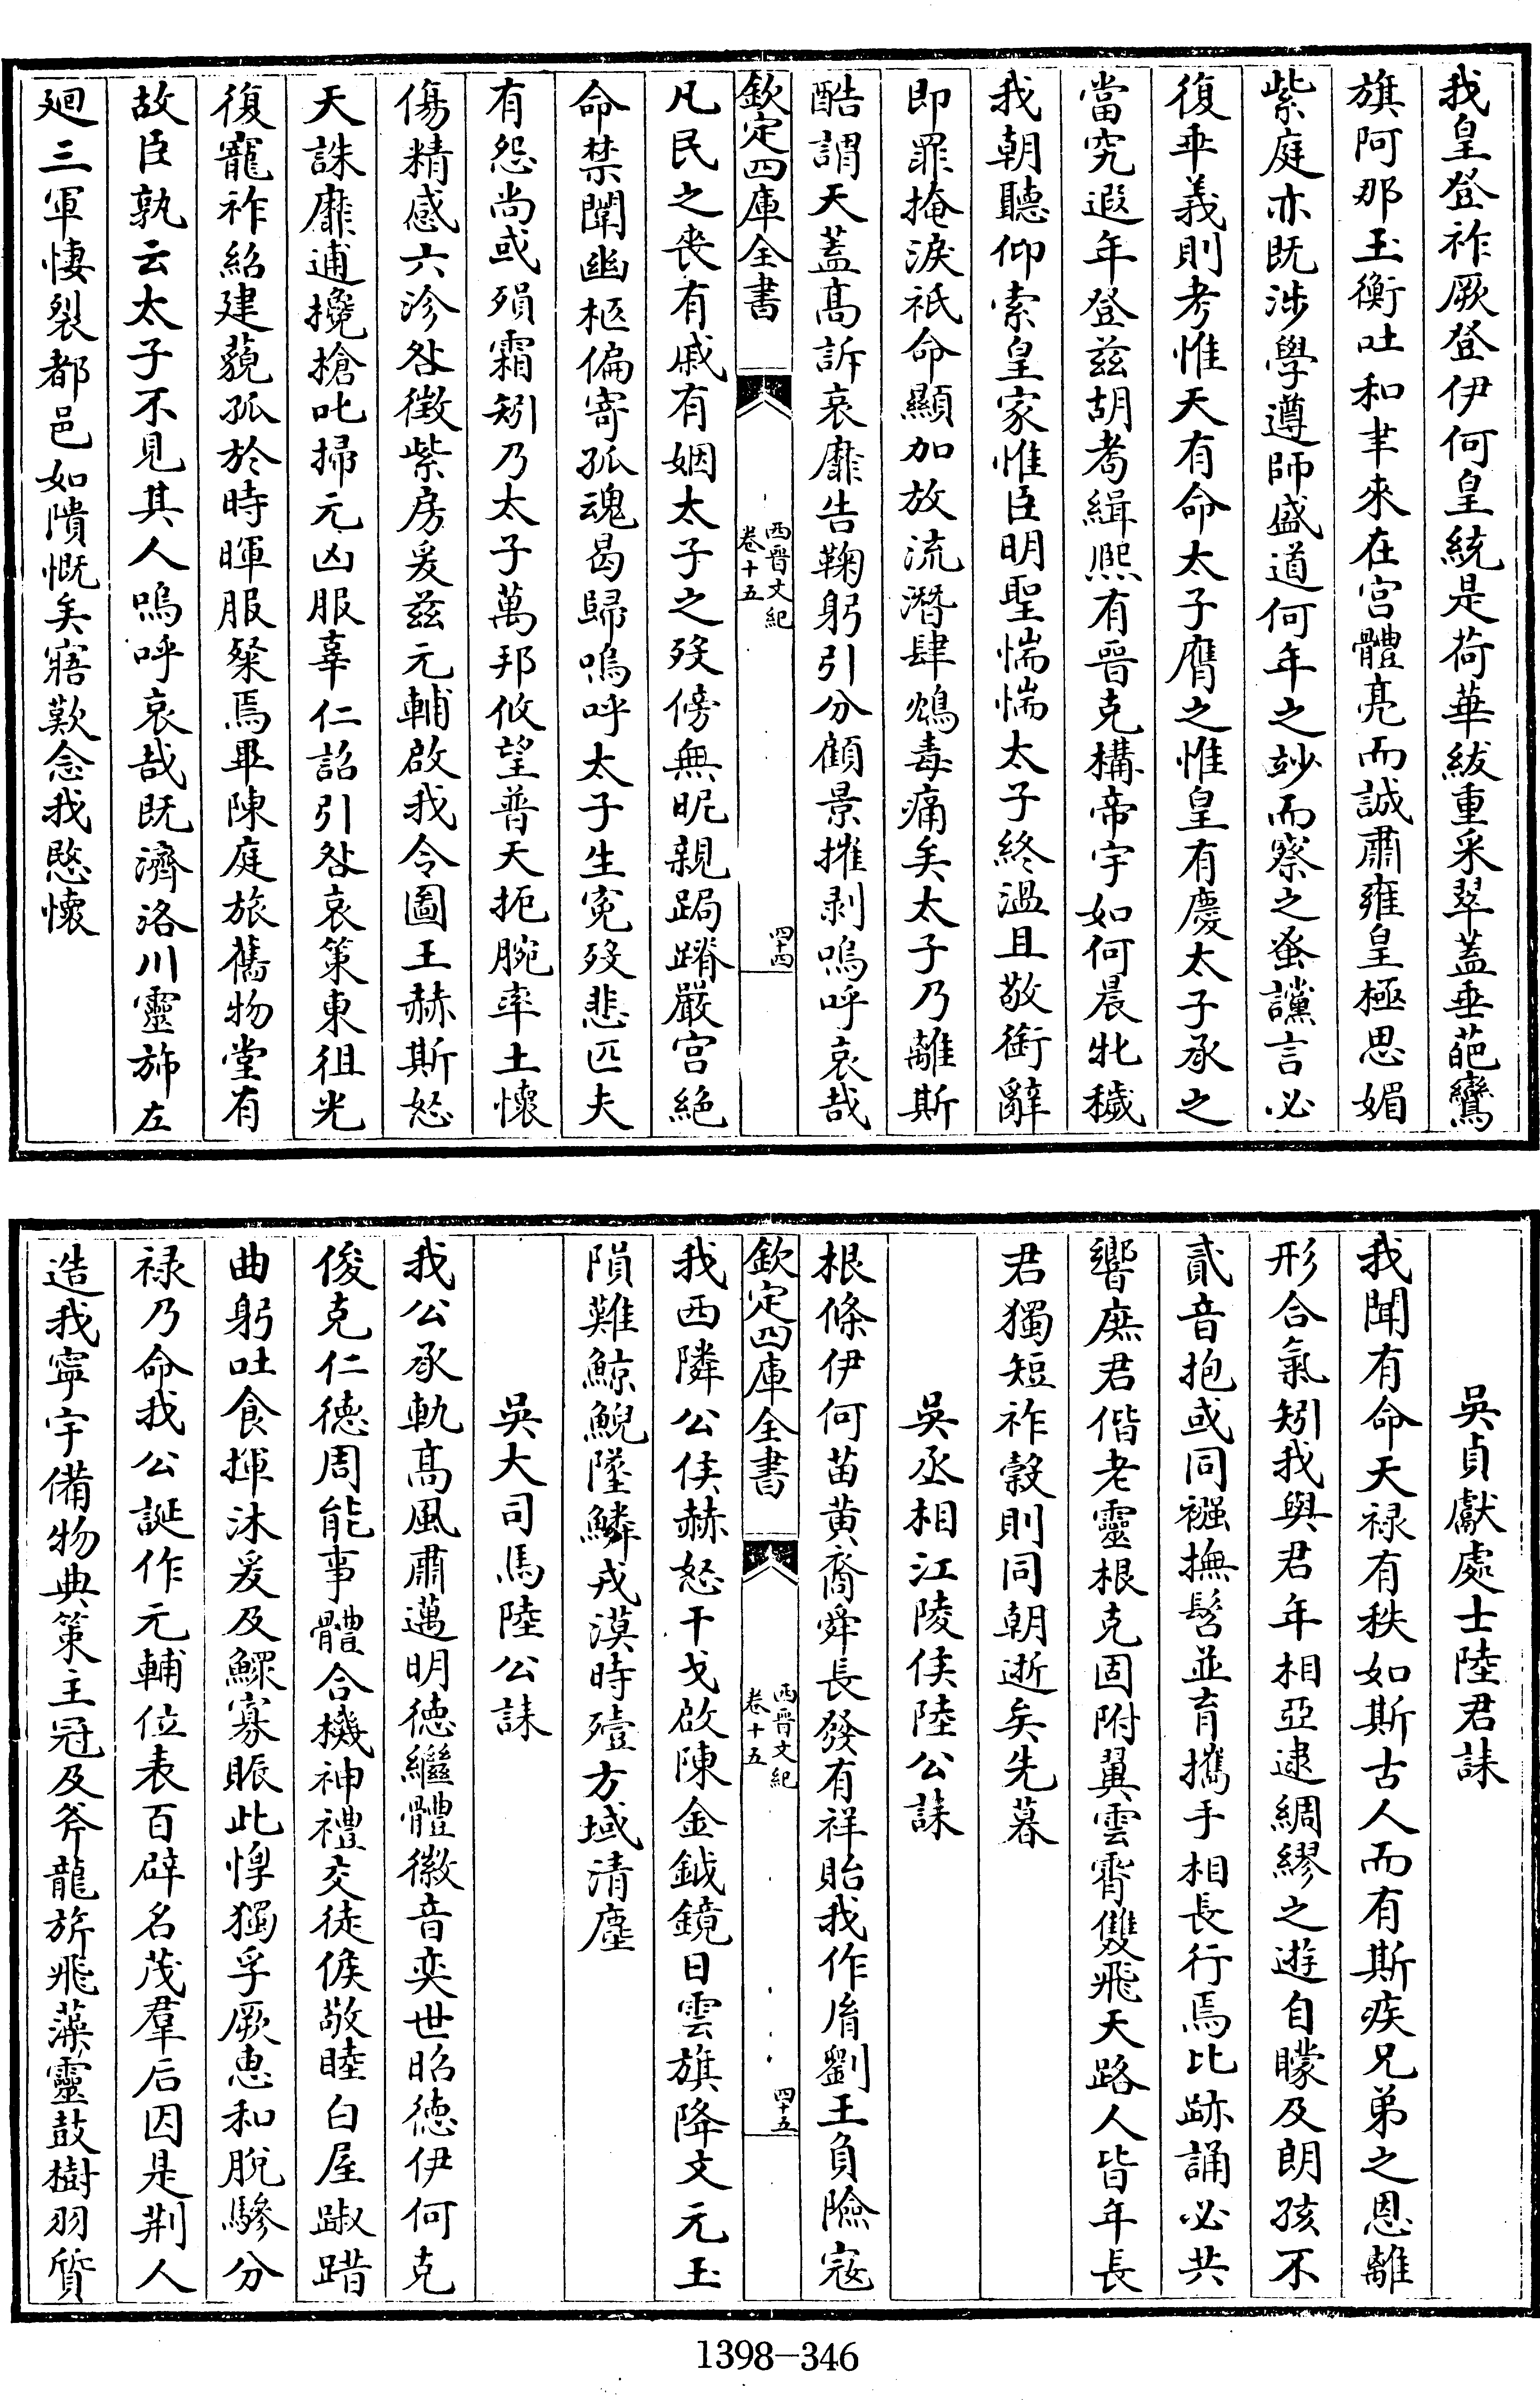 我皇登祚厥登伊何皇統是荷華紱重采翠蓋垂葩鸞
旗阿那玉衡吐和聿來在宫體亮而誠肅雍皇極思媚
紫庭亦既涉學遵師盛道何年之妙而察之蚤讜言必
復乖義則考惟天有命太子膺之惟皇有慶太子承之
當究遐年登兹胡耇緝熙有晉克構帝宇如何晨牝穢
我朝聽仰索皇家惟臣明聖惴惴太子終溫且敬銜辭
即罪掩淚祇命顯加放流潛肆鴆毒痛矣太子乃離斯
酷謂天蓋髙訴哀靡告鞠躬引分顧景摧剥嗚呼哀哉
欽定四庫全書
西晉文紀
卷十五
四十四
凡民之喪有戚有姻太子之歿傍無昵親跼蹐嚴宫絶
命禁闈幽柩偏寄孤魂曷歸嗚呼太子生寃歿悲匹夫
有怨尚或殞霜矧乃太子萬邦攸望普天扼腕率土懷
傷精感六沴咎徵紫房爰兹元輔啟我令圖王赫斯怒
天誅靡逋攙搶叱掃元凶服辜仁詔引咎哀策東徂光
復寵祚紹建藐孤於時暉服粲焉畢陳庭旅舊物堂有
故臣孰云太子不見其人嗚呼哀哉既濟洛川靈斾左
廻三軍悽裂都邑如隤慨矣寤歎念我愍懷
吳貞獻處士陸君誄
我聞有命天禄有秩如斯古人而有斯疾兄弟之恩離
形合氣矧我與君年相亞逮綢繆之遊自矇及朗孩不
貳音抱或同襁撫髫並育攜手相長行焉比跡誦必共
響庶君偕老靈根克固附翼雲霄雙飛天路人皆年長
君獨短祚榖則同朝逝矣先暮
吳丞相江陵侯陸公誄
根條伊何苗黄裔舜長發有祥貽我作胤劉王負險寇
欽定四庫全書
西晉文紀
卷十五
四十五
我西隣公侯赫怒干戈啟陳金鉞鏡日雲旗降文元玉
隕難鯨鯢墜鱗戎漠時殪方域清塵
吳大司馬陸公誄
我公承軌髙風肅邁明徳繼體徽音奕世昭徳伊何克
俊克仁德周能事體合機神禮交徒候敬睦白屋踧踖
曲躬吐食揮沐爰及鰥寡賑此惸獨孚厥惠和脱驂分
禄乃命我公誕作元輔位表百辟名茂羣后因是荆人
造我寧宇備物典策主冠及斧龍旂飛藻靈鼓樹羽質
1398-346